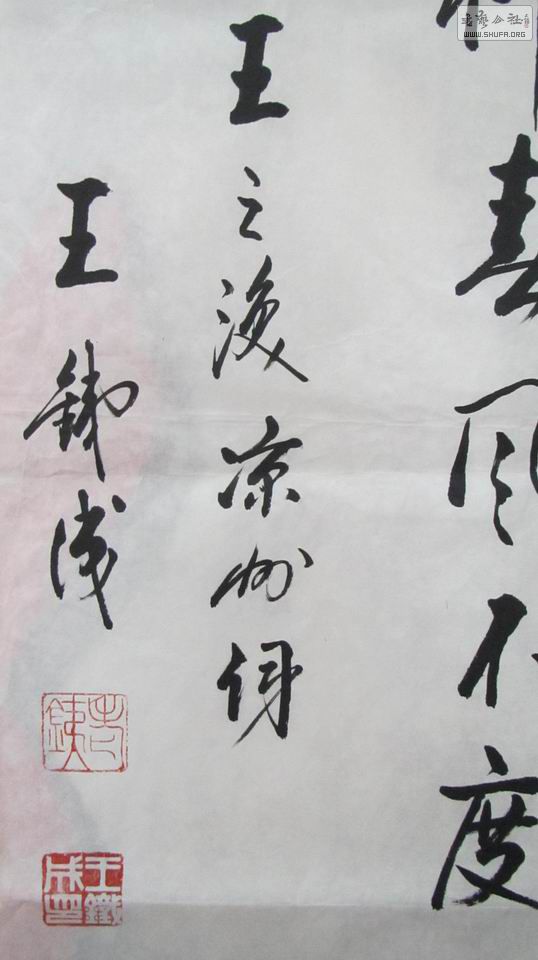 书艺公社
WWW.SHUFA.ORG
春风不度
王之渙凉州詞
王鉄成
王鐵成印